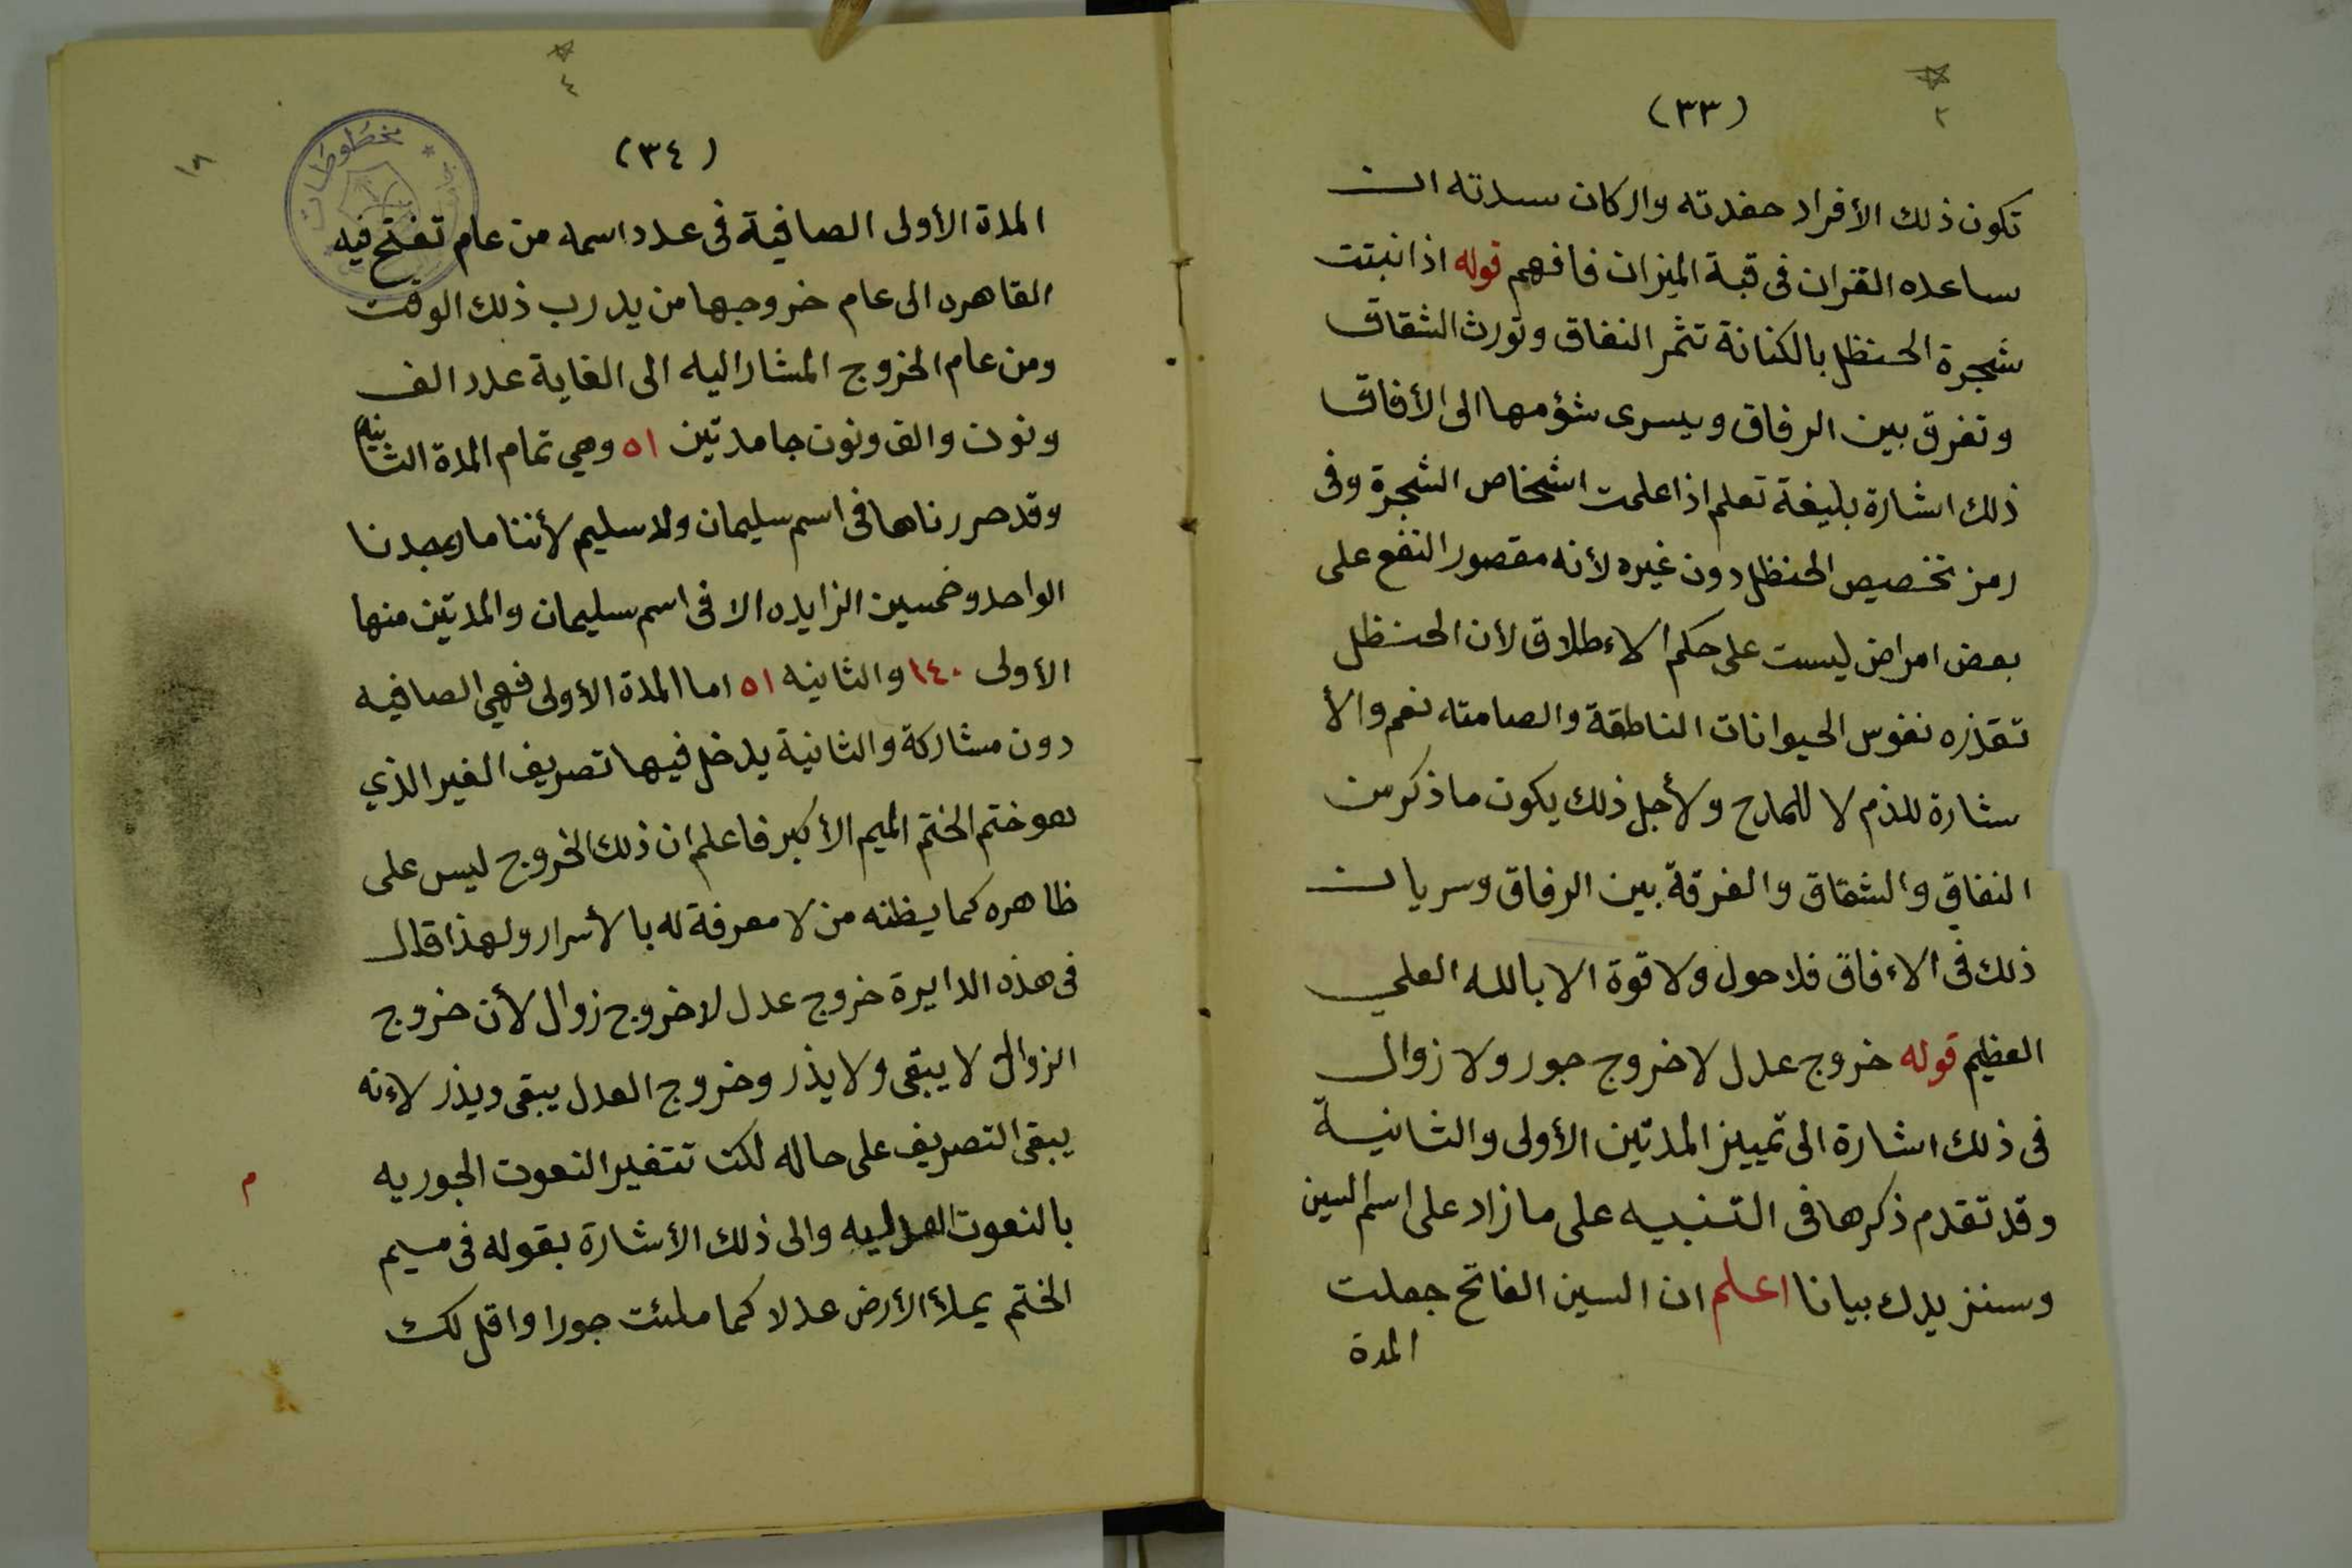 (٣٣)
تكون ذلك الأفراد حفدته والركان سدته ان
ساعده القران فى قبة الميزان فافهم قوله اذا نبتت
شجرة الحنظل بالكنانة تثمر النفاق وتورث الشقاق
وتفرق بين الرفاق ويسرى شؤمها الى الأفاق
ذلك اشارة بليغة تعلم اذا علمت اشخاص الشجرة وفى
رمز تخصيص الحنظل دون غيره لأنه مقصور النفع على
بعض امراض ليست على حكم الاءطلاق لأن الحنظل
تقذره نفوس الحيوانات الناطقة والصامته نعم والأ
شارة للذم لا للمادح ولأجل ذلك يكون ما ذكر من
النفاق والشقاق والفرقة بين الرفاق وسريان
ذلك فى الاءفاق فلا حول ولا قوة الا بالله العلي
العظيم قوله خروج عدل لا خروج جور ولا زوال
فى ذلك اشارة الى تمييز المدتين الأولى والثانية
وقد تقدم ذكرها فى التنبيه على ما زاد على اسم السين
وسنزيدك بيانا اعلم ان السين الفاتح جعلت
المدة
٤
(٣٤)
١٨
مخطوطات
المدة الأولى الصافية فى عدد اسمه من عام تفتح فيه
القاهره الى عام خروجها من يد رب ذلك الوقت
ومن عام الخروج المشار اليه الى الغاية عدد الف
ونون والف ونون جامدتين ٥١ وهي تمام المدة الثانيه
وقد حررناها فى اسم سليمان ولا سليم لأننا ما وجدنا
الواحد وخمسين الزايده الا فى اسم سليمان والمدتين منها
الأولى ١٤٠ والثانيه ٥١ اما المدة الأولى فهي الصافيه
دون مشاركة والثانية يدخل فيها تصريف الغير الذي
هو ختم الختم الميم الأكبر فاعلم ان ذلك الخروج ليس على
ظاهره كما يظنه من لا معرفة له بالأسرار ولهذا قال
فى هذه الدايرة خروج عدل لا خروج زوال لأن خروج
الزوال لا يبقى ولا يذر وخروج العدل يبقى ويذر لاءنه
يبقى التصريف على حاله لكن تتغير النعوت الجوريه
بالنعوت العدليه والى ذلك الأشارة بقوله فى ميم
م
الختم يملأ الأرض عدلا كما ملئت جورا واقل لك